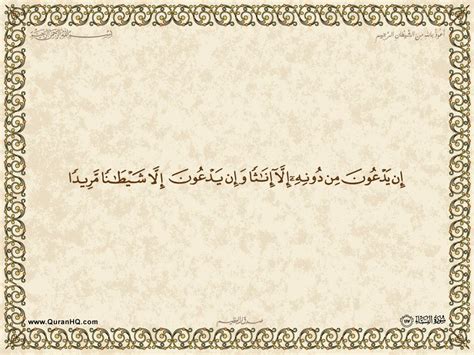 أعوذ بالله من الشيطان الرجيم
بسم الله الرحمن الرحيم
إِن يَدْعُونَ مِن دُونِهِۦٓ إِلَّآ إِنَٰثًا وَإِن يَدْعُونَ إِلَّا شَيْطَٰنًا مَّرِيدًا
سورة النساء
صدق الله العظيم
www.QuranHQ.com